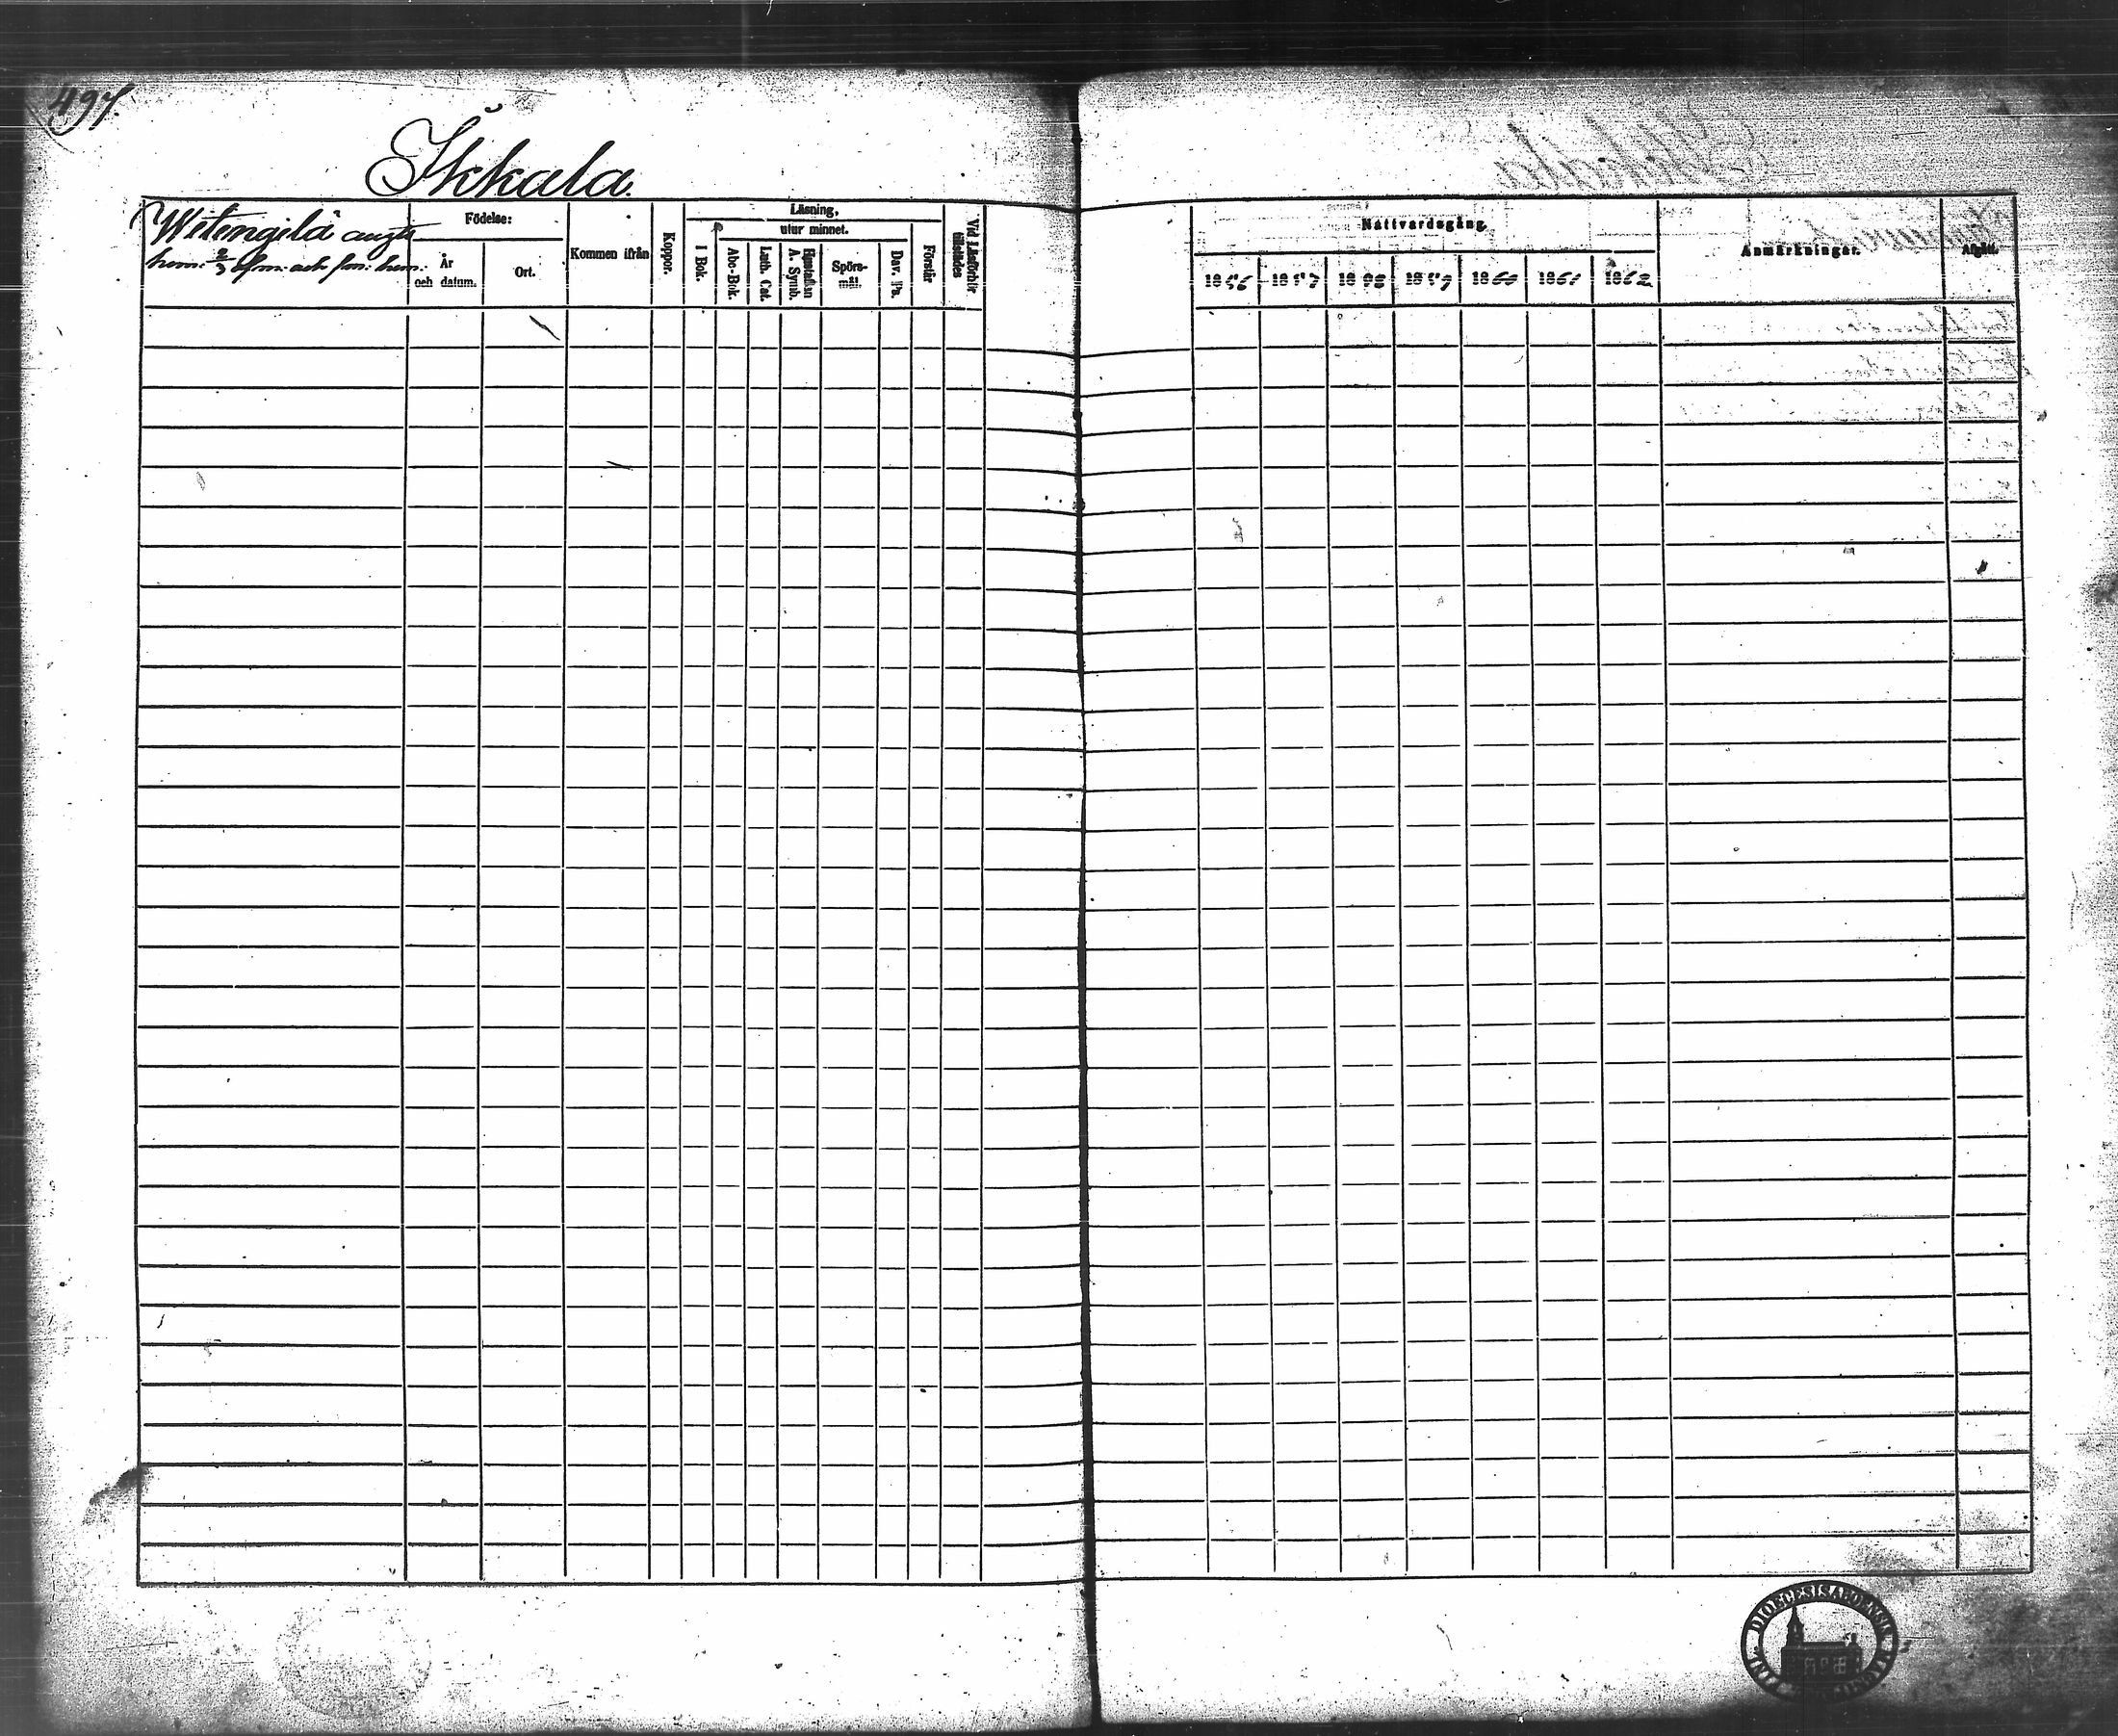 497.
Ikkala.
Witengilä augts
hem: 2/3 och hem:
Födelse:
År
och datum.
Ort.
Kommen ifrån
Koppor.
Läsning,
utur minnet.
I Bok.
Abc-Bok.
Luth. Cat.
Hustaflan
A. Symb.
Spörs-
mål.
Dav. Ps.
Förstår
Vid Läsförhör
tillstädes
Nattvardsgång.
1856 1857 1858 1859 1860 1861 1862
Anmärkningar.
Afgått.